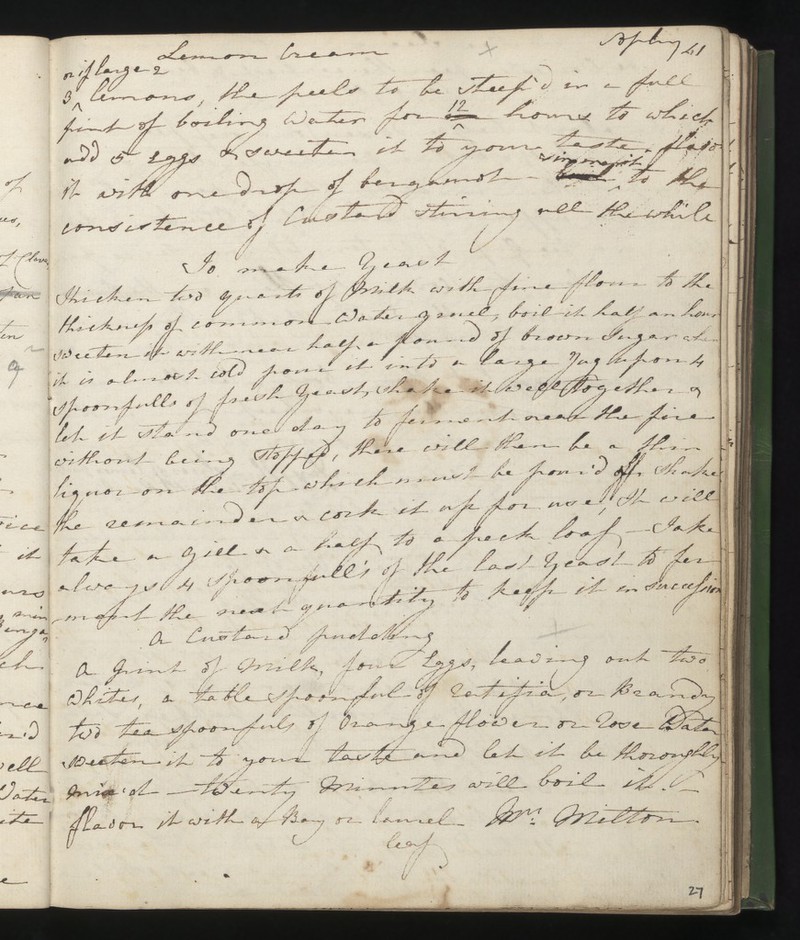 Lemon Cream
41
or if large 2
3 lemons, the peels to be steep'd in a full
pint of boiling water for 12 hours to which
add 5 eggs & sweeten it to your taste, flavor
it with one drop of bergamot simmer it to the
consistence of Custard stirring all the while
To make Yeast
thicken two quarts of Milk with fine flour to the
thickness of common Water gruel, boil it half an hour
sweeten it with near half a pound of brown Sugar when
it is almost cold pour it into a large Jug upon 4
spoonfulls of fresh Yeast, shake it well together &
let it stand one day to ferment near the fire
without being stopped, there will then be a thin
liquor on the top which must be pour'd off, shake
the remainder & cork it up for use, It will
take a Gill & a half to a peck loaf - Take
always 4 spoonfull's of the last Yeast to fer
ment the next quantity to keep it in succession
A Custard pudding
A pint of Milk, four Eggs, leaving out two
Whites, a table spoonful of ratifia, or Brandy
two tea spoonfuls of Orange flower or rose Water
sweeten it to your taste and let it be thoroughly
mix'd - twenty Minutes will boil it. -
flavor it with a Bay or laurel Mrs. Milton
leaf
27